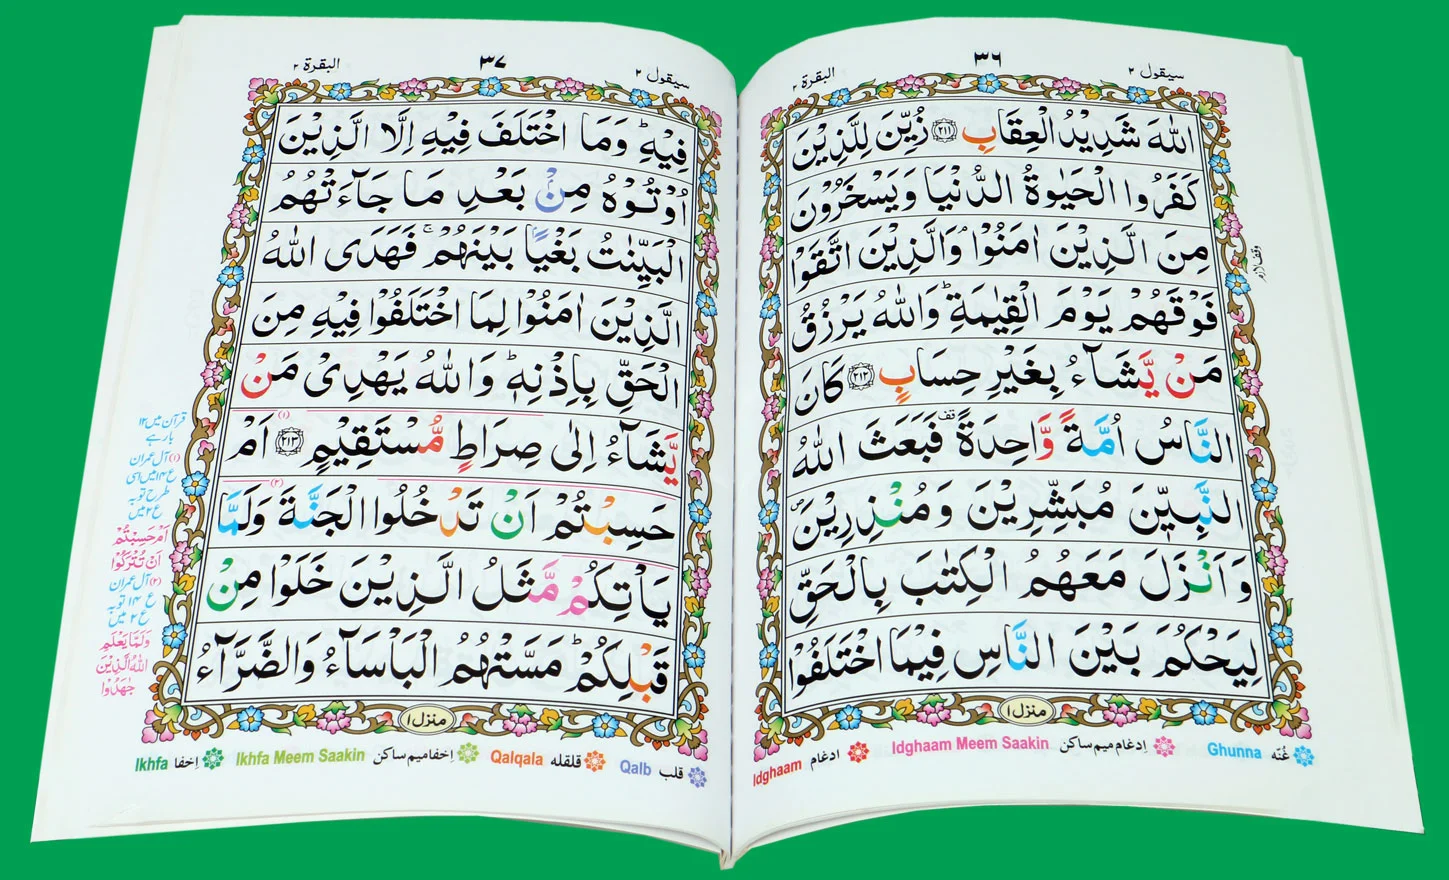 سيقول ٢
٣٦
البقرة ٢
اللّٰهَ شَدِيْدُ الْعِقَابِ ﴿٢١١﴾ زُيِّنَ لِلَّذِيْنَ
كَفَرُوا الْحَيٰوةُ الدُّنْيَا وَيَسْخَرُوْنَ
مِنَ الَّذِيْنَ اٰمَنُوْا ۘ وَالَّذِيْنَ اتَّقَوْا
فَوْقَهُمْ يَوْمَ الْقِيٰمَةِ ؕ وَاللّٰهُ يَرْزُقُ
مَنْ يَّشَآءُ بِغَيْرِ حِسَابٍ ﴿٢١٢﴾ كَانَ
النَّاسُ اُمَّةً وَّاحِدَةً ۟ قف فَبَعَثَ اللّٰهُ
النَّبِيّٖنَ مُبَشِّرِيْنَ وَمُنْذِرِيْنَ ۪
وَاَنْزَلَ مَعَهُمُ الْكِتٰبَ بِالْحَقِّ
لِيَحْكُمَ بَيْنَ النَّاسِ فِيْمَا اخْتَلَفُوْا
وقف لازم
منزل ١
Ghunna غُنّه
Idghaam Meem Saakin اِدغام میم ساکن
Idghaam ادغام
سيقول ٢
٣٧
البقرة ٢
فِيْهِ ؕ وَمَا اخْتَلَفَ فِيْهِ اِلَّا الَّذِيْنَ
اُوْتُوْهُ مِنْۢ بَعْدِ مَا جَآءَتْهُمُ
الْبَيِّنٰتُ بَغْيًۢا بَيْنَهُمْ ۚ فَهَدَى اللّٰهُ
الَّذِيْنَ اٰمَنُوْا لِمَا اخْتَلَفُوْا فِيْهِ مِنَ
الْحَقِّ بِاِذْنِهٖ ؕ وَاللّٰهُ يَهْدِىْ مَنْ
يَّشَآءُ اِلٰى صِرَاطٍ مُّسْتَقِيْمٍ ﴿٢١٣﴾ اَمْ
حَسِبْتُمْ اَنْ تَدْخُلُوا الْجَنَّةَ وَلَمَّا
يَاْتِكُمْ مَّثَلُ الَّذِيْنَ خَلَوْا مِنْ
قَبْلِكُمْ ؕ مَسَّتْهُمُ الْبَاْسَآءُ وَالضَّرَّآءُ
قرآن میں ١٢
بار ہے
(١) آل عمران
ع ١٤ میں اسی
طرح توبہ
ع ٢ میں
اَمْ حَسِبْتُمْ
اَنْ تُتْرَكُوْا
(٢) آل عمران
ع ١٤ توبہ
ع ٢ میں
وَلَمَّا يَعْلَمِ
اللّٰهُ الَّذِيْنَ
جٰهَدُوْا
منزل ١
Qalb قلب
Qalqala قلقله
Ikhfa Meem Saakin اِخفا میم ساکن
Ikhfa اِخفا